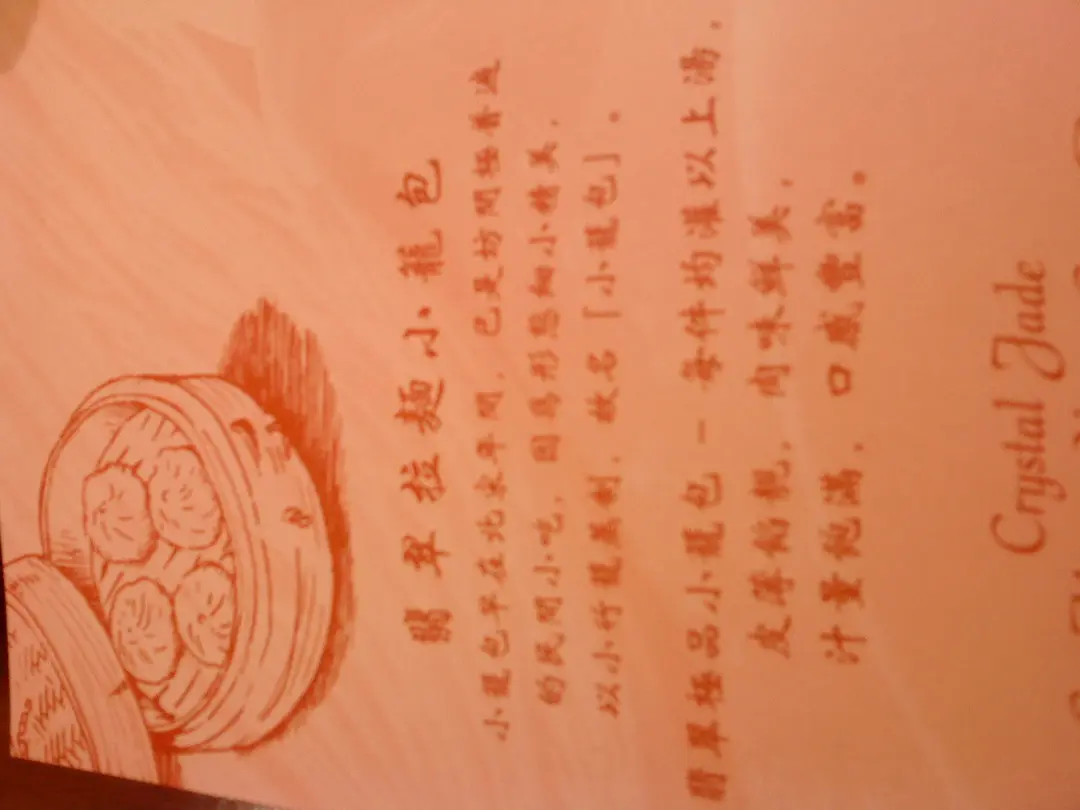 翡翠拉麵小籠包
小籠包早在北宋年間，已是坊間極普遍
的民間小吃，因為形態細小精美，
以小竹籠蒸制，故名「小籠包」。
翡翠極品小籠包－每件均灌以上湯，
皮薄餡靚，肉味鮮美，
汁量飽滿，口感豐富。
Crystal Jade